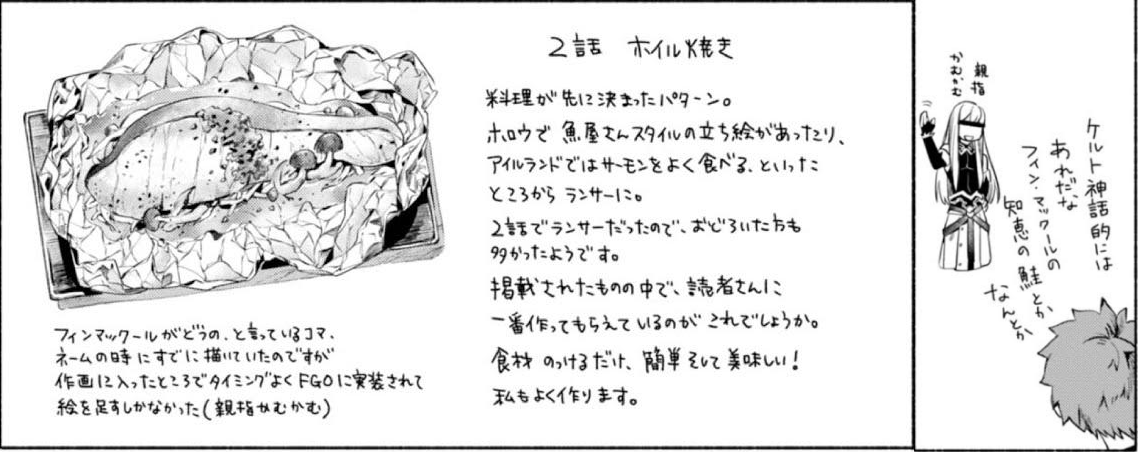 2話 ホイル焼き
料理が先に決まったパターン。
ホロウで魚屋さんスタイルの立ち絵があったり、
アイルランドではサーモンをよく食べる、といった
ところからランサーに。
2話でランサーだったので、おどろいた方も
多かったようです。
掲載されたものの中で、読者さんに
一番作ってもらえているのがこれでしょうか。
食材のっけるだけ、簡単そして美味しい!
私もよく作ります。
フィンマックールがどうの、と言っているコマ、
ネームの時にすでに描いていたのですが
作画に入ったところでタイミングよくFGOに実装されて
絵を足すしかなかった(親指かむかむ)
ケルト神話的には
あれだな
フィン・マックールの
知恵の鮭とか
なんとか
親指
かむかむ